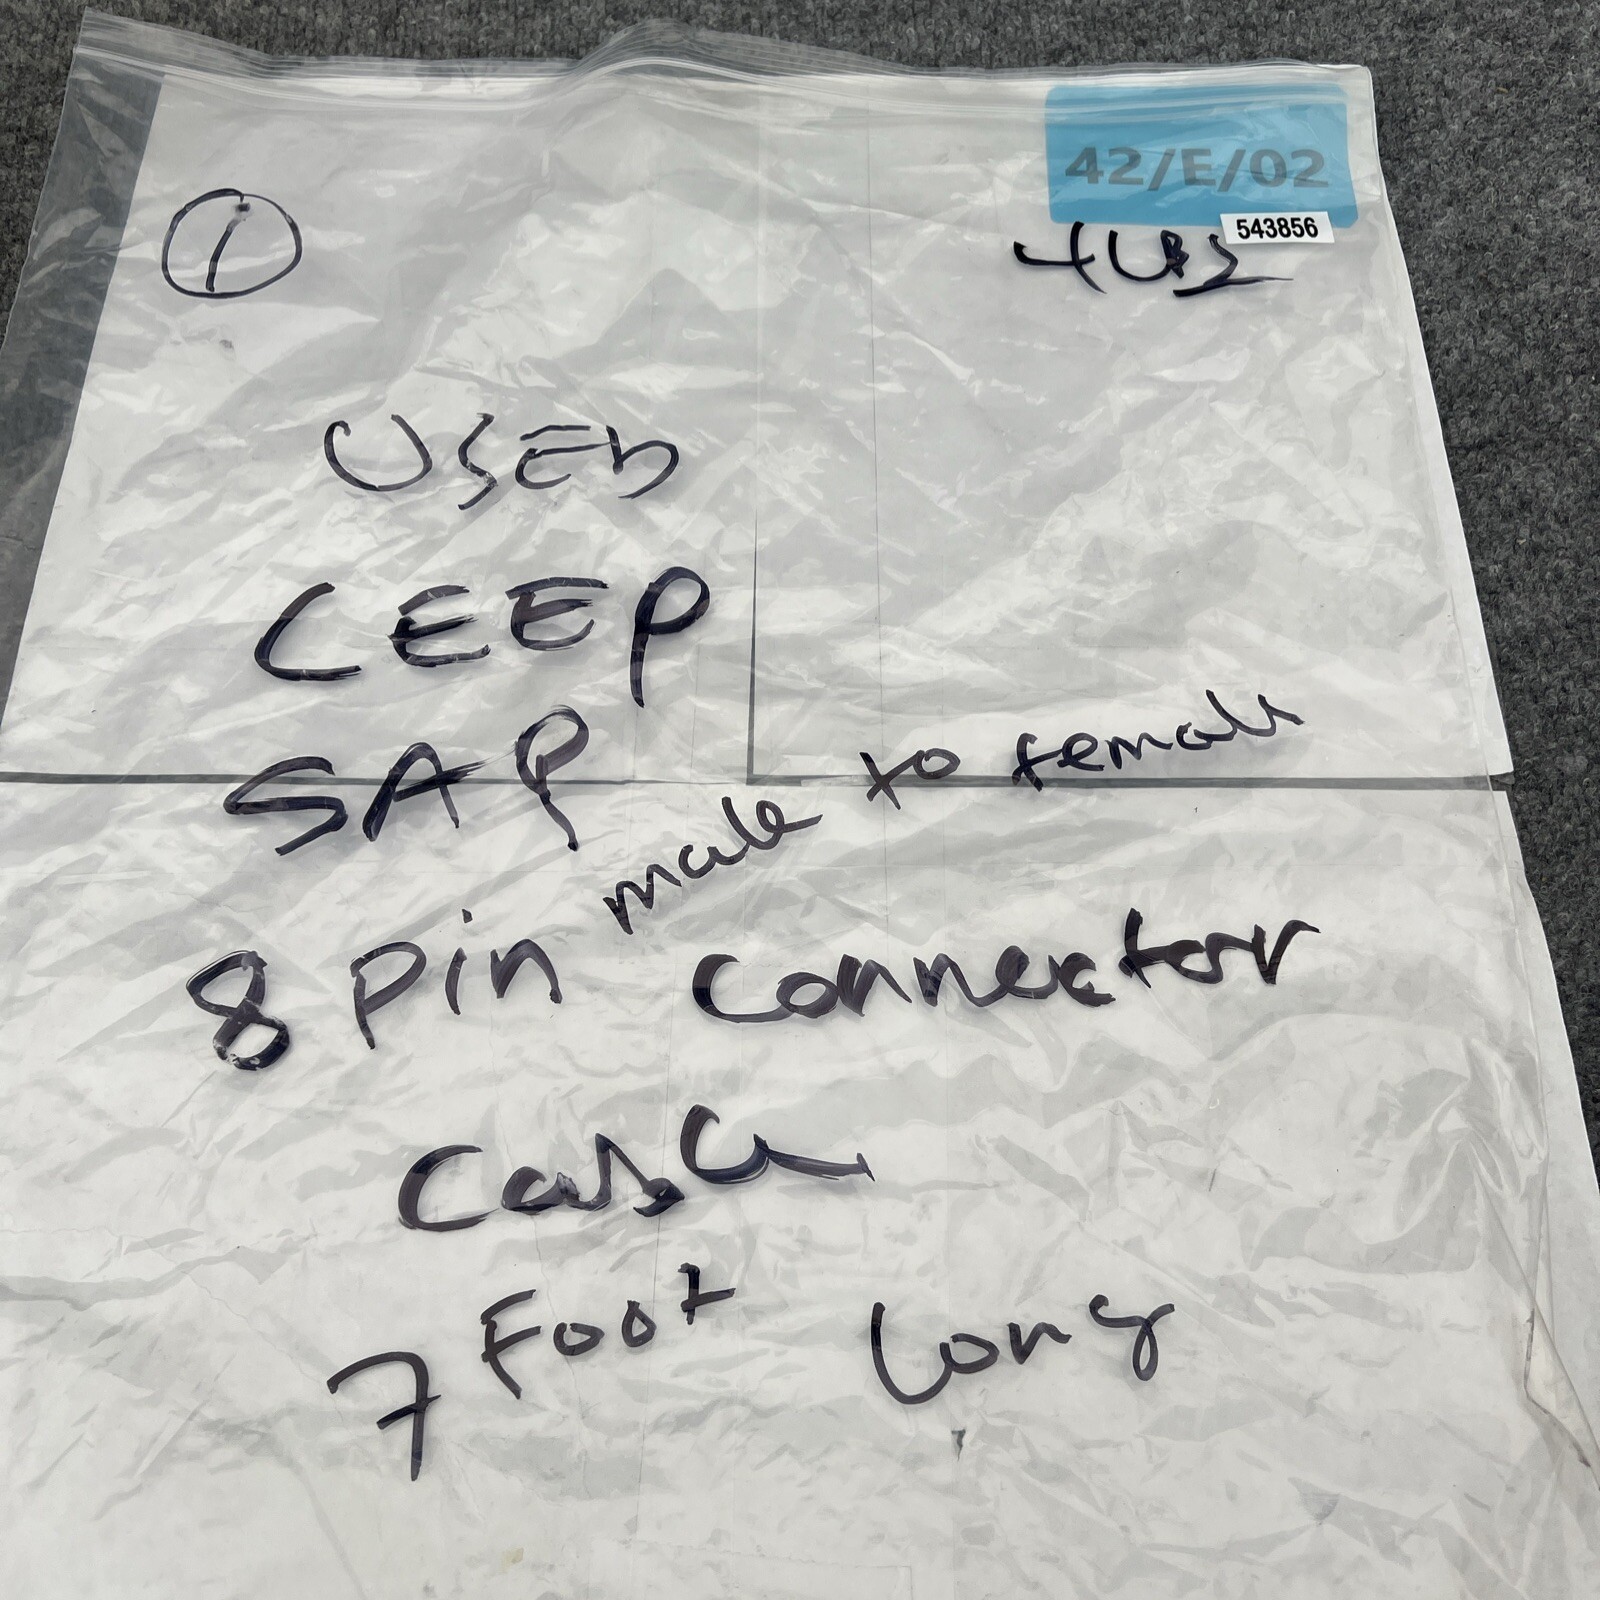 42/E/02
543856
1
USED
CEEP
SAP
8 pin male to female connector
7 Foot long